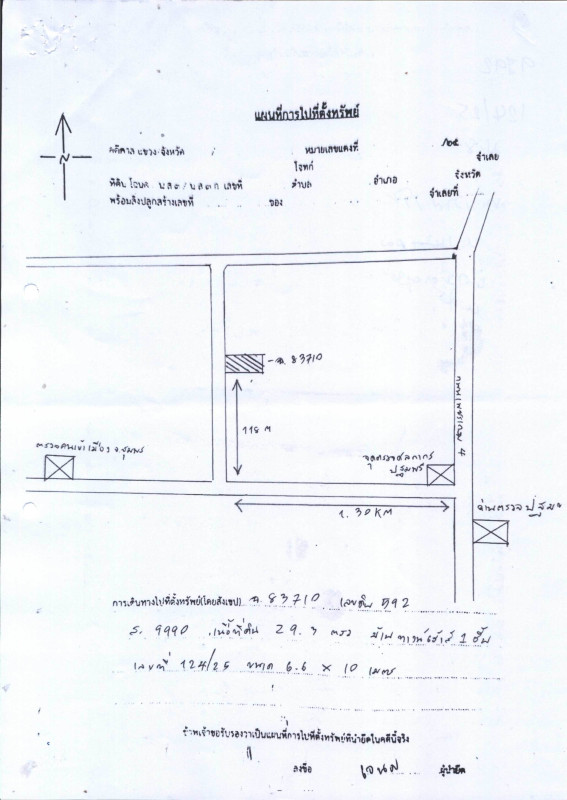 แผนที่การไปที่ตั้งทรัพย์
N
คดีศาล แขวง/จังหวัด หมายเลขแดงที่ /๒๕
โจทก์ จำเลย
ที่ดิน โฉนด น.ส.๓/น.ส.๓ ก. เลขที่ ตำบล อำเภอ จังหวัด
พร้อมสิ่งปลูกสร้างเลขที่ ของ จำเลยที่
ฉ. 83710
118 M
ถนนเพชรเกษม 4
ตรวจคนเข้าเมือง จ.ชุมพร
จุดตรวจศุลกากร
ปฐมพร
1.30 KM
การเดินทางไปที่ตั้งทรัพย์(โดยสังเขป) ฉ 83710 เลขดิน 592
ร. 9990 เนื้อที่ดิน 29.7 ตรว บ้าน ทาวน์เฮ้าส์ 1 ชั้น
เลขที่ 124/25 ขนาด 6.6 x 10 เมตร
ข้าพเจ้าขอรับรองว่าเป็นแผนที่การไปที่ตั้งทรัพย์ที่นำยึดในคดีนี้จริง
ลงชื่อ ผู้นำยึด